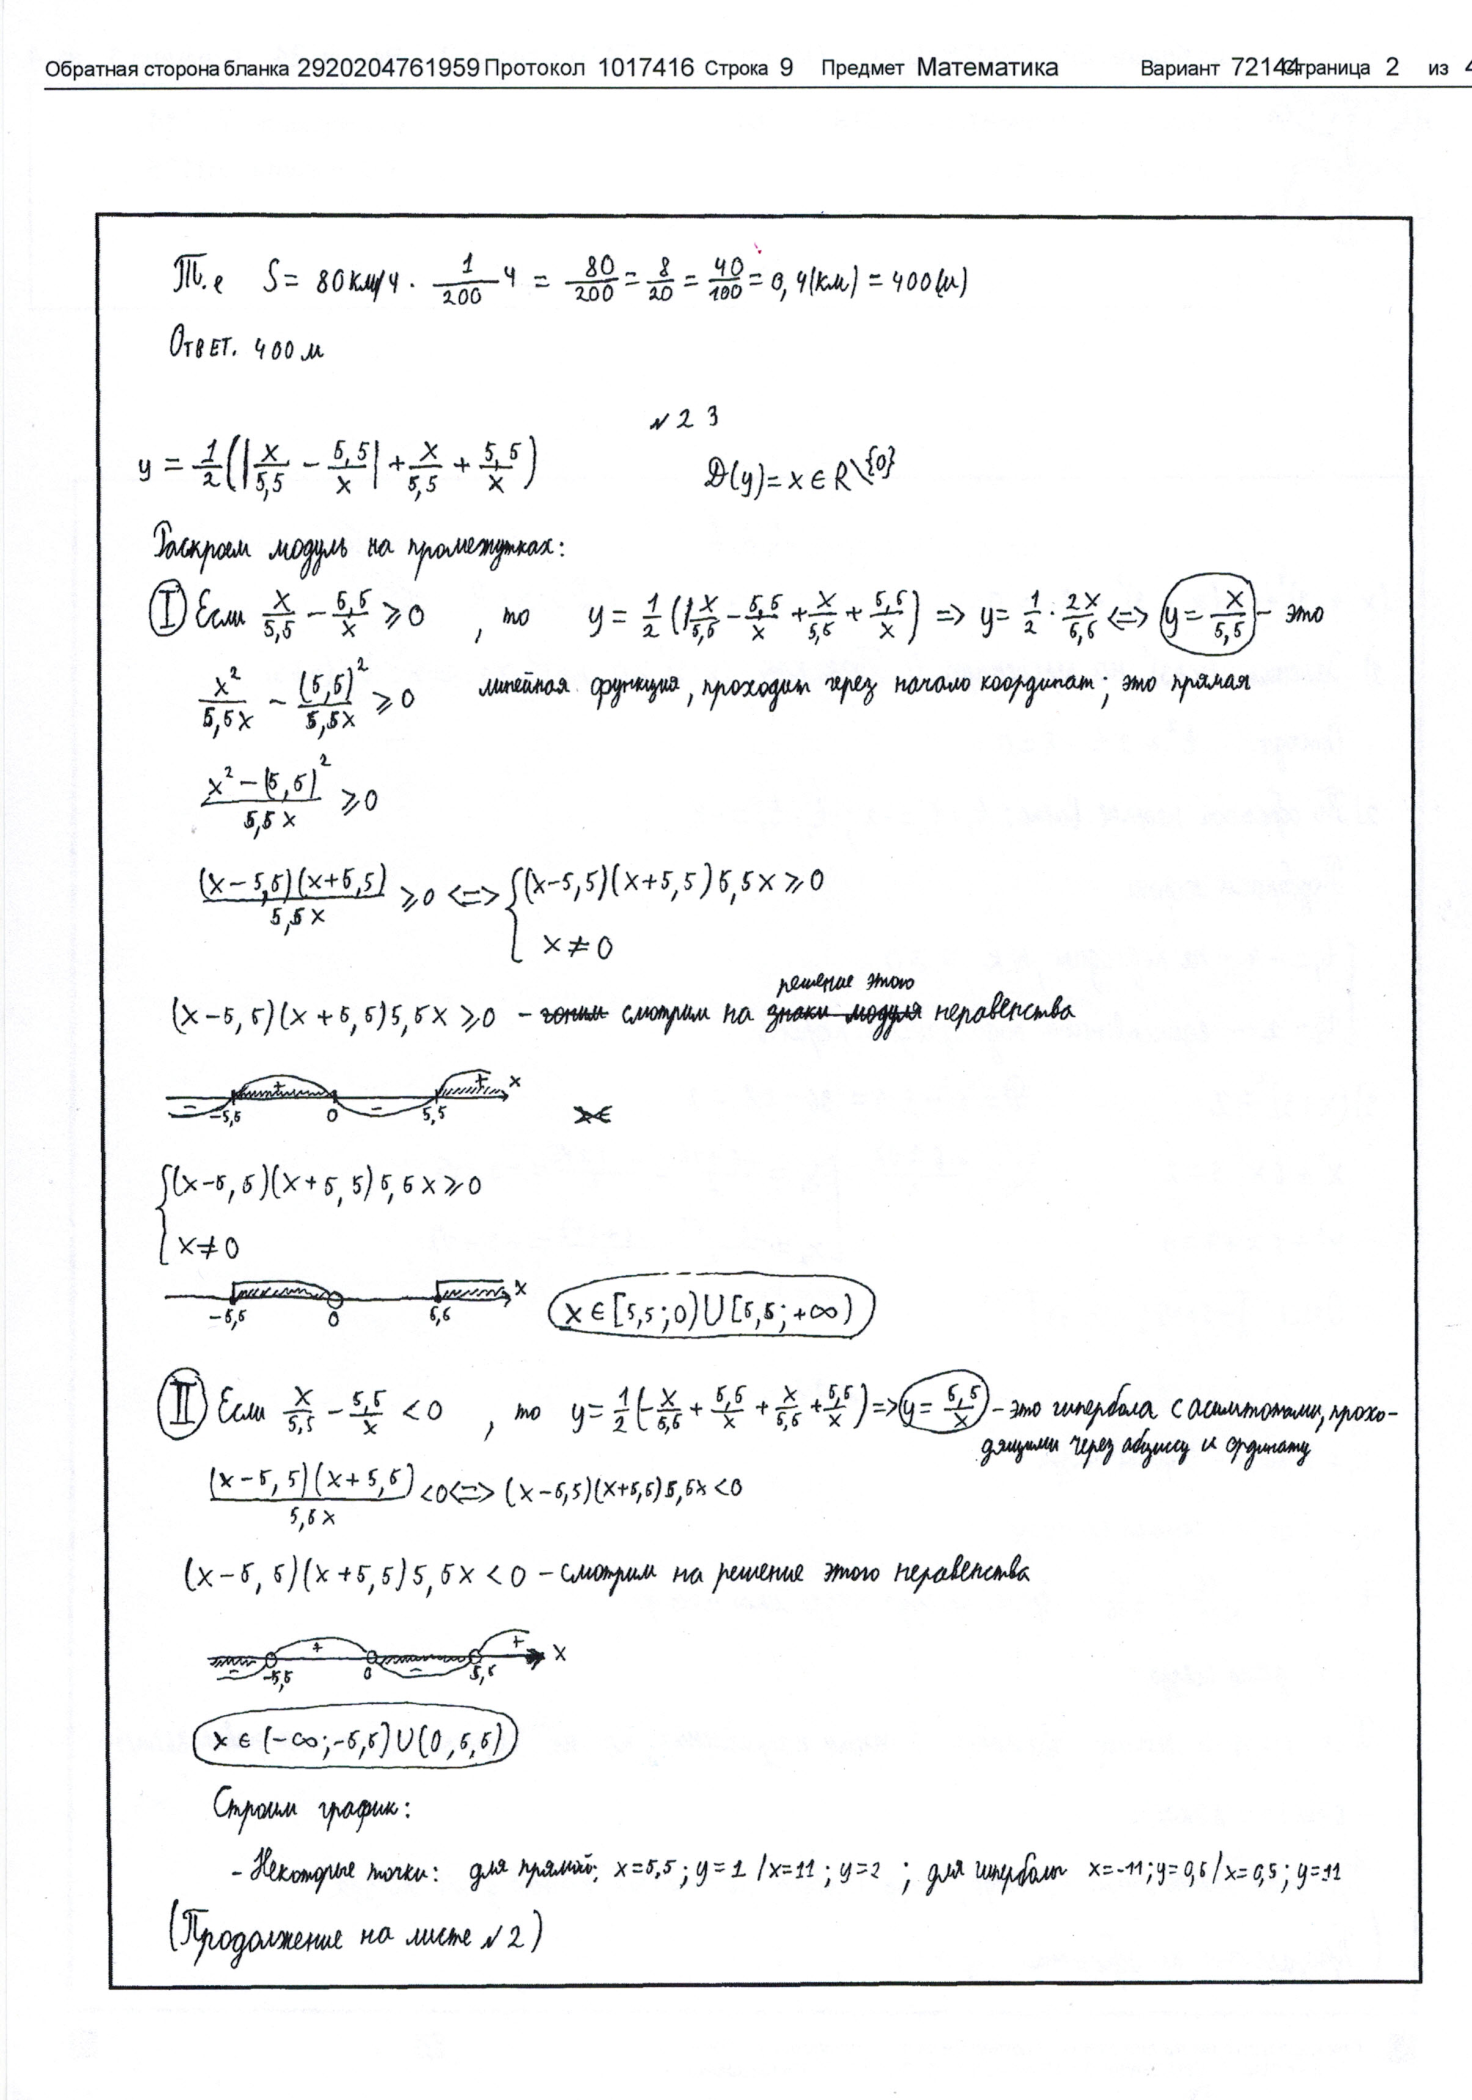 Обратная сторона бланка 2920204761959 Протокол 1017416 Строка 9 Предмет Математика Вариант 72144 Страница 2 из 4
Т.е S = 80км/ч · 1/200 ч = 80/200 = 8/20 = 40/100 = 0,4(км) = 400(м)
Ответ. 400 м
№23
y = 1/2(|x/5,5 − 5,5/x| + x/5,5 + 5,5/x) D(y)= x ∈ R\{0}
Раскроем модуль на промежутках:
I Если x/5,5 − 5,5/x ⩾ 0 , то y = 1/2 (|x/5,5 − 5,5/x + x/5,5 + 5,5/x) => y = 1/2 · 2x/5,5 <=> y = x/5,5 – это
x²/5,5x − (5,5)²/5,5x ⩾ 0 линейная функция, проходит через начало координат; это прямая
x² − (5,5)²/5,5x ⩾ 0
(x−5,5)(x+5,5)/5,5x ⩾ 0 <=> {(x−5,5)(x+5,5)5,5x ⩾ 0
x ≠ 0
решение этого
(x−5,5)(x+5,5)5,5x ⩾ 0 – смотрим на знаки модуля неравенства
− + − + x
−5,5 0 5,5
x∈
{(x−5,5)(x+5,5)5,5x ⩾ 0
x ≠ 0
x
−5,5 0 5,5
x ∈ [5,5; 0) U [5,5; +∞)
II Если x/5,5 − 5,5/x < 0 , то y = 1/2(−x/5,5 + 5,5/x + x/5,5 + 5,5/x) => y = 5,5/x – это гипербола с асимтотами, прохо-
дящими через абциссу и ординату
(x−5,5)(x+5,5)/5,5x < 0 <=> (x−5,5)(x+5,5)5,5x < 0
(x−5,5)(x+5,5)5,5x < 0 – смотрим на решение этого неравенства
− + − + x
−5,5 0 5,5
x ∈ (−∞; −5,5) U (0, 5,5)
Строим график:
- Некоторые точки: для прямой: x=5,5; y=1 / x=11; y=2 ; для гиперболы x=-11; y=0,5 / x=0,5; y=11
(Продолжение на листе №2)